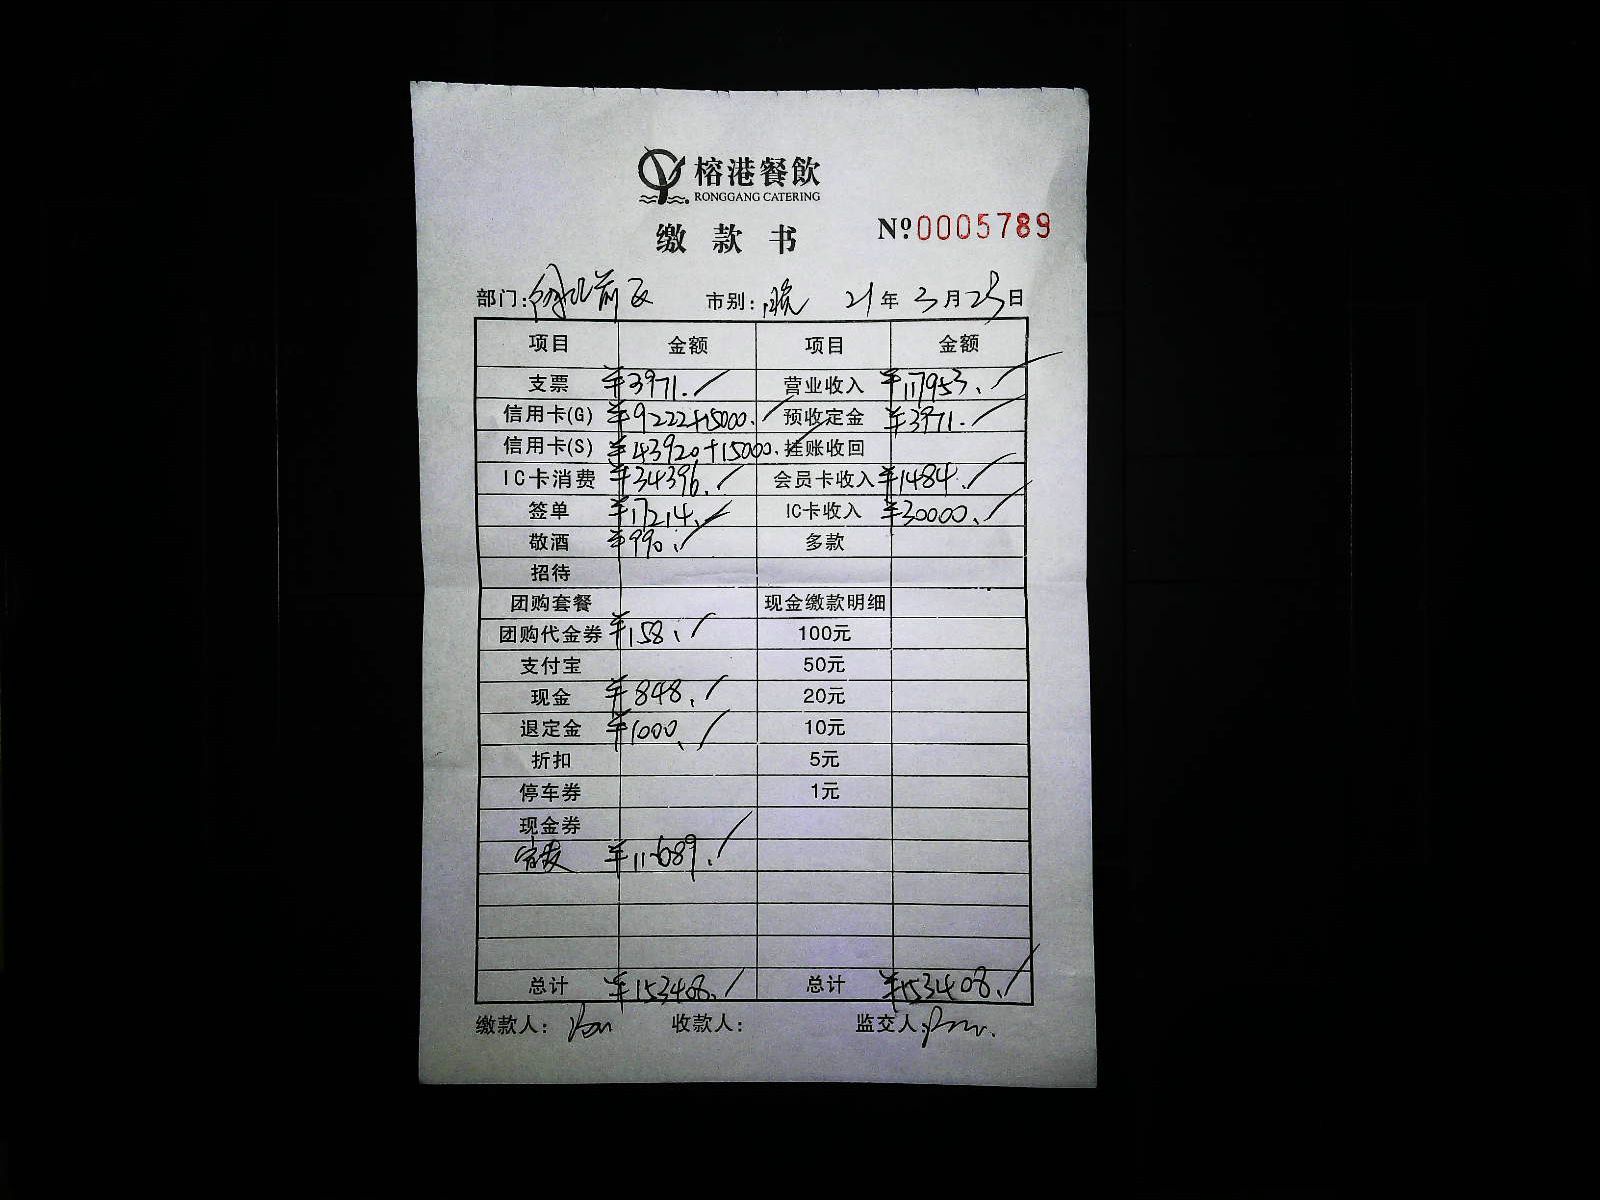 榕港餐飲
RONGGANG CATERING
缴款书 Nº0005789
部门: 市别:晚 21年3月25日
项目 金额 项目 金额
支票 ¥3971. 营业收入 ¥117953.
信用卡(G) ¥9222+15000. 预收定金 ¥3971.
信用卡(S) ¥43920+15000. 挂账收回
IC卡消费 ¥34396. 会员卡收入 ¥1484.
签单 ¥17214. IC卡收入 ¥30000.
敬酒 ¥990. 多款
招待
团购套餐 现金缴款明细
团购代金券 ¥158. 100元
支付宝 50元
现金 ¥848. 20元
退定金 ¥1000. 10元
折扣 5元
停车券 1元
现金券
¥11689.
总计 ¥153408. 总计 ¥153408.
缴款人: 收款人: 监交人: